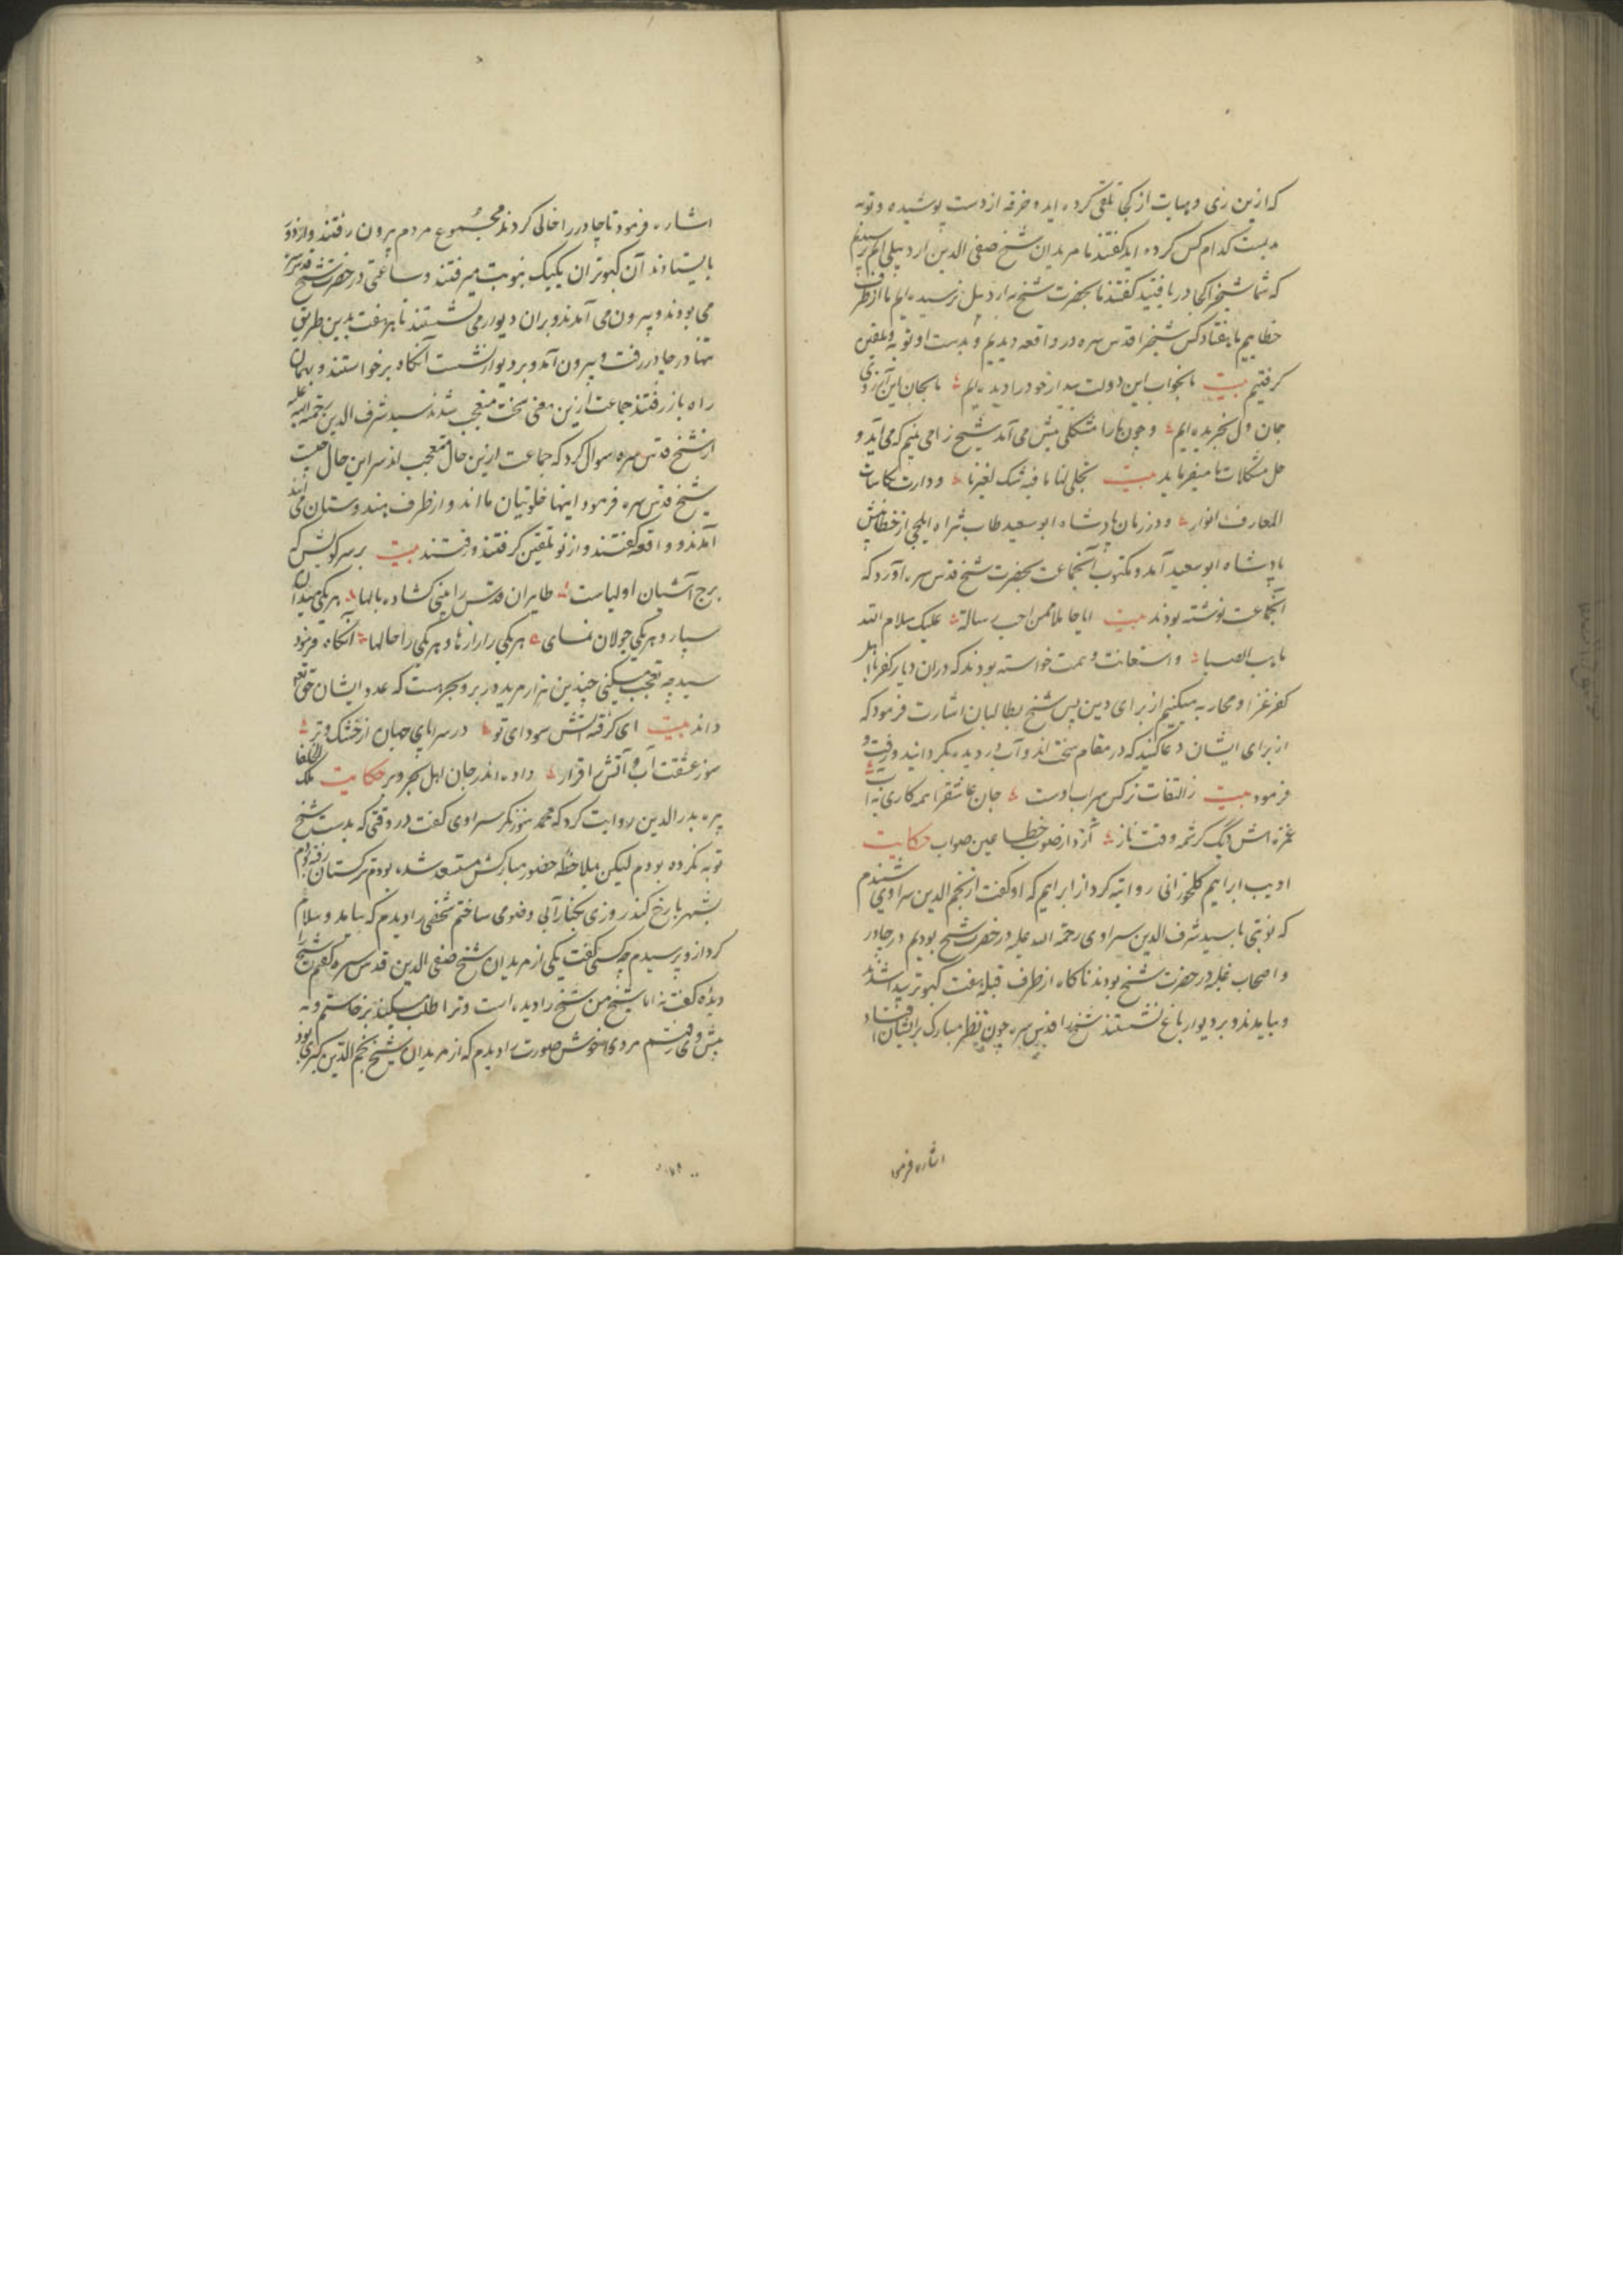 که ازین زی و هیات از کجا تلقی کرده اید و خرقه از دست پوشیده و توبه
بدست کدام کس کرده اید گفتند ما مریدان شیخ صفی الدین اردبیلی ایم پرسیدم
که شما شیخ را کجا دریافتید گفتند ما بحضرت شیخ به اردبیل نرسیده ایم ما از طرف
خطاییم ما هفتاد کس شیخ را قدس سره در واقعه دیدیم و بدست او توبه و تلقین
گرفتیم بیت ما بخواب این دولت بیدار خود را دیده ایم ما بجان این آرزوی
جان و دل بخریده ایم و چون ما را مشکلی پیش می آمد شیخ را می بینیم که می آید و
حل مشکلات ما میفرماید بیت تجلی لنا ما فیه شک لغیرنا و دارت کاسات
المعارف انوار و در زمان پادشاه ابو سعید طاب ثراه ایلچی از خطا پیش
پادشاه ابو سعید آمد و مکتوب آنجماعت بحضرت شیخ قدس سره آورد که
آنجماعت نوشته بودند بیت ایا حاملا من احب رسالة علیک سلام الله
ما هب الصبا و استعانت و همت خواسته بودند که در آن دیار کفر با اهل
کفر غزا و محاربه میکنیم از برای دین پس شیخ بطالبان اشارت فرمود که
از برای ایشان دعا کنید که در مقام سخت اند و آب در دیده بگردانید و رقت و
فرمود بیت ز التفات نرگس سیراب اوست جان عاشق را همه کاری به آب
غمزه اش یک کرشمه وقت ناز آرد از صوب خطا عین صواب حکایت
ادیب ابراهیم کلخورانی روایه کرد از ابراهیم که او گفت از نجم الدین سراوی شنیدم
که نوبتی با سید شرف الدین سراوی رحمة الله علیه در حضرت شیخ بودیم در چادر
و اصحاب غلبه در حضرت شیخ بودند ناگاه از طرف قبله هفت کبوتر پیدا شدند
و بیامدند و بر دیوار باغ نشستند شیخ را قدس سره چون نظر مبارک بر ایشان افتاد
اشاره فرمود
اشاره فرمود تا چادر را خالی کردند مجموع مردم بیرون رفتند و از دور
بایستادند آن کبوتران یکیک بنوبت میرفتند و ساعتی در حضرت شیخ قدس سره
می بودند و بیرون می آمدند و بر آن دیوار می نشستند تا هر هفت بدین طریق
تنها در چادر رفت و بیرون آمد و بر دیوار نشست آنگاه برخواستند و بهمان
راه باز رفتند جماعت ازین معنی سخت متعجب شدند سید شرف الدین رحمة الله علیه
از شیخ قدس سره سوال کرد که جماعت ازین حال متعجب اند سر این حال چیست
شیخ قدس سره فرمود اینها خلوتیان ما اند و از طرف هندوستان می آیند
آمدند و واقعه گفتند و از نو تلقین گرفتند و رفتند بیت بر سر کویش که
برج آشیان اولیاست طایران قدس را بینی گشاده بالها هر یکی میدان
سپار و هر یکی جولان نمای هر یکی را رازها و هر یکی را حالها آنگاه فرمود
سید چه تعجب میکنی چندین هزار مرید در بر و بحر هست که عدد ایشان حق تعالی
داند بیت ای گرفته آتش سودای تو در سراپای جهان از خشک و تر
سوز عشقت آب و آتش اقرار داده اندر جان اهل بحر و بر حکایت ملک الخلفا
پیره بدر الدین روایت کرد که محمد سوزنگر سراوی گفت در وقتی که بدست شیخ
توبه نکرده بودم لیکن بملاحظه حضور مبارکش مستسعد شده بودم بترکستان رفته بودم
بشهر بارخ کند روزی بکنار آبی وضو می ساختم شخصی را دیدم که بیامد و سلام
کرد از و پرسیدم چه کسی گفت یکی از مریدان شیخ صفی الدین قدس سره گفتم شیخ را
دیده گفت نه اما شیخ من شیخ را دیده است و ترا طلب میکند برخاستم و به
پیش وی رفتم مردی خوش صورت را دیدم که از مریدان شیخ نجم الدین کبری بود